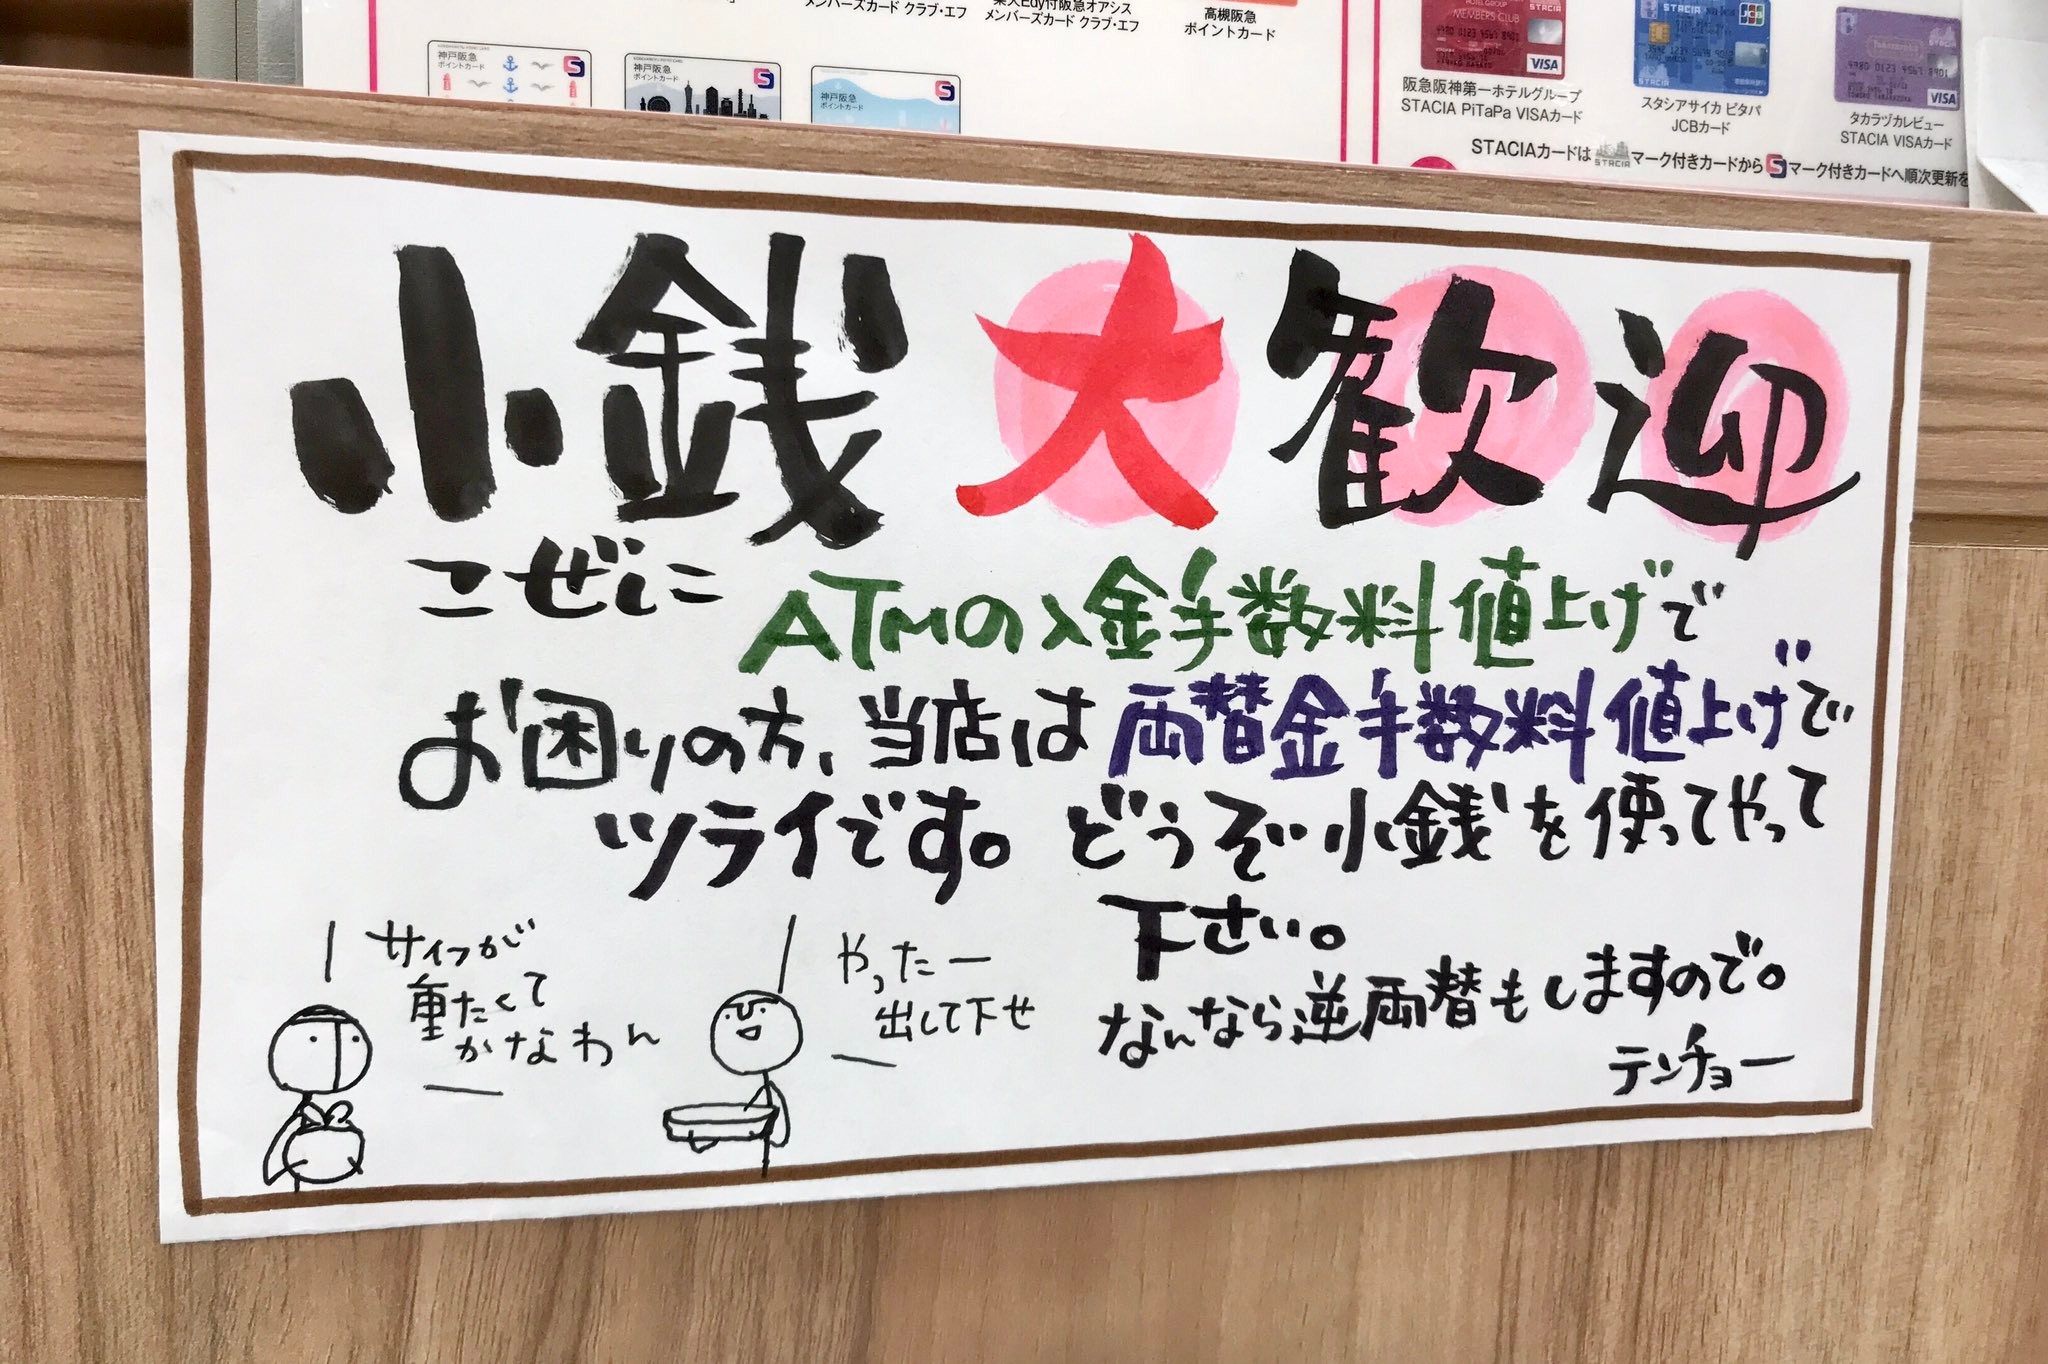 メンバーズカード クラブ・エフ
楽天Edy付阪急オアシス
メンバーズカード クラブ・エフ
高槻阪急
ポイントカード
神戸阪急
ポイントカード
神戸阪急
ポイントカード
神戸阪急
ポイントカード
MEMBERS CLUB
VISA
阪急阪神第一ホテルグループ
STACIA PiTaPa VISAカード
STACIA
JCB
スタシアサイカ ピタパ
JCBカード
VISA
タカラヅカレビュー
STACIA VISAカード
STACIAカードはSTACIAマーク付きカードからSマーク付きカードへ順次更新を
小銭大歓迎
こぜに
ATMの入金手数料値上げで
お困りの方、当店は両替金手数料値上げで
ツライです。どうぞ小銭を使ってやって
下さい。
なんなら逆両替もしますので。
テンチョー
サイフが
重たくて
かなわん
やったー
出して下せ